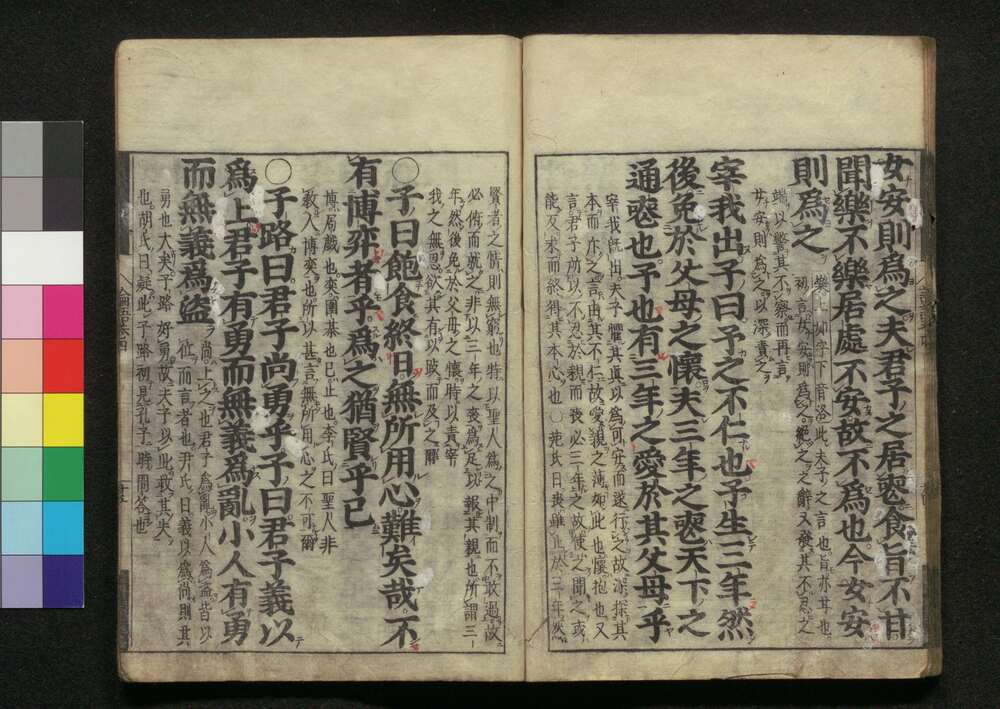 女安則爲之夫君子之居喪食旨不甘
聞樂不樂居處不安故不爲也今女安
則爲之
樂上如字下音洛此夫子之言也旨亦甘也
初言女安則爲之絶之之辭又發其不忍之
端以警其不察而再言
女安則爲之以深責之
宰我出子曰予之不仁也子生三年然
後免於父母之懷夫三年之喪天下之
通喪也予也有三年之愛於其父母乎
宰我既出夫子懼其眞以爲可安而遂行之故深探其
本而斥之言由其不仁故愛親之薄如此也懷抱也又
言君子所以不忍於親而喪必三年之故使之聞之或
能反求而終得其本心也○范氏曰喪雖止於三年然
賢者之情則無窮也特以聖人爲之中制而不敢過故
必俯而就之非以三年之喪爲足以報其親也所謂三
年然後免於父母之懷特以責宰
我之無恩欲其有以跂而及之爾
○子曰飽食終日無所用心難矣哉不
有博弈者乎爲之猶賢乎已
博局戲也奕圍棊也已止也李氏曰聖人非
教人博奕也所以甚言無所用心之不可爾
○子路曰君子尚勇乎子曰君子義以
爲上君子有勇而無義爲亂小人有勇
而無義爲盜
尚上之也君子爲亂小人爲盗皆以
位而言者也尹氏曰義以爲尚則其
勇也大矣子路好勇故夫子以此救其失
也胡氏曰疑此子路初見孔子時問答也